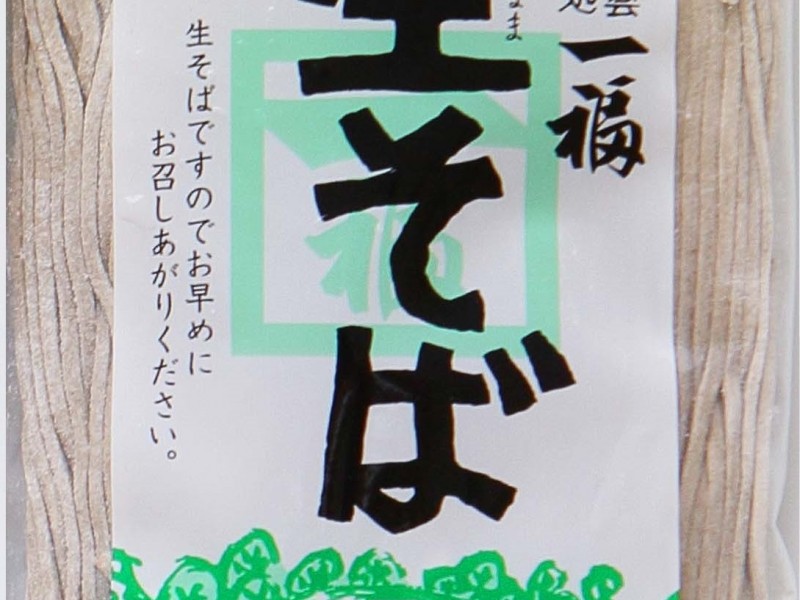 一福
生そば
生そばですのでお早めに
お召しあがりください。